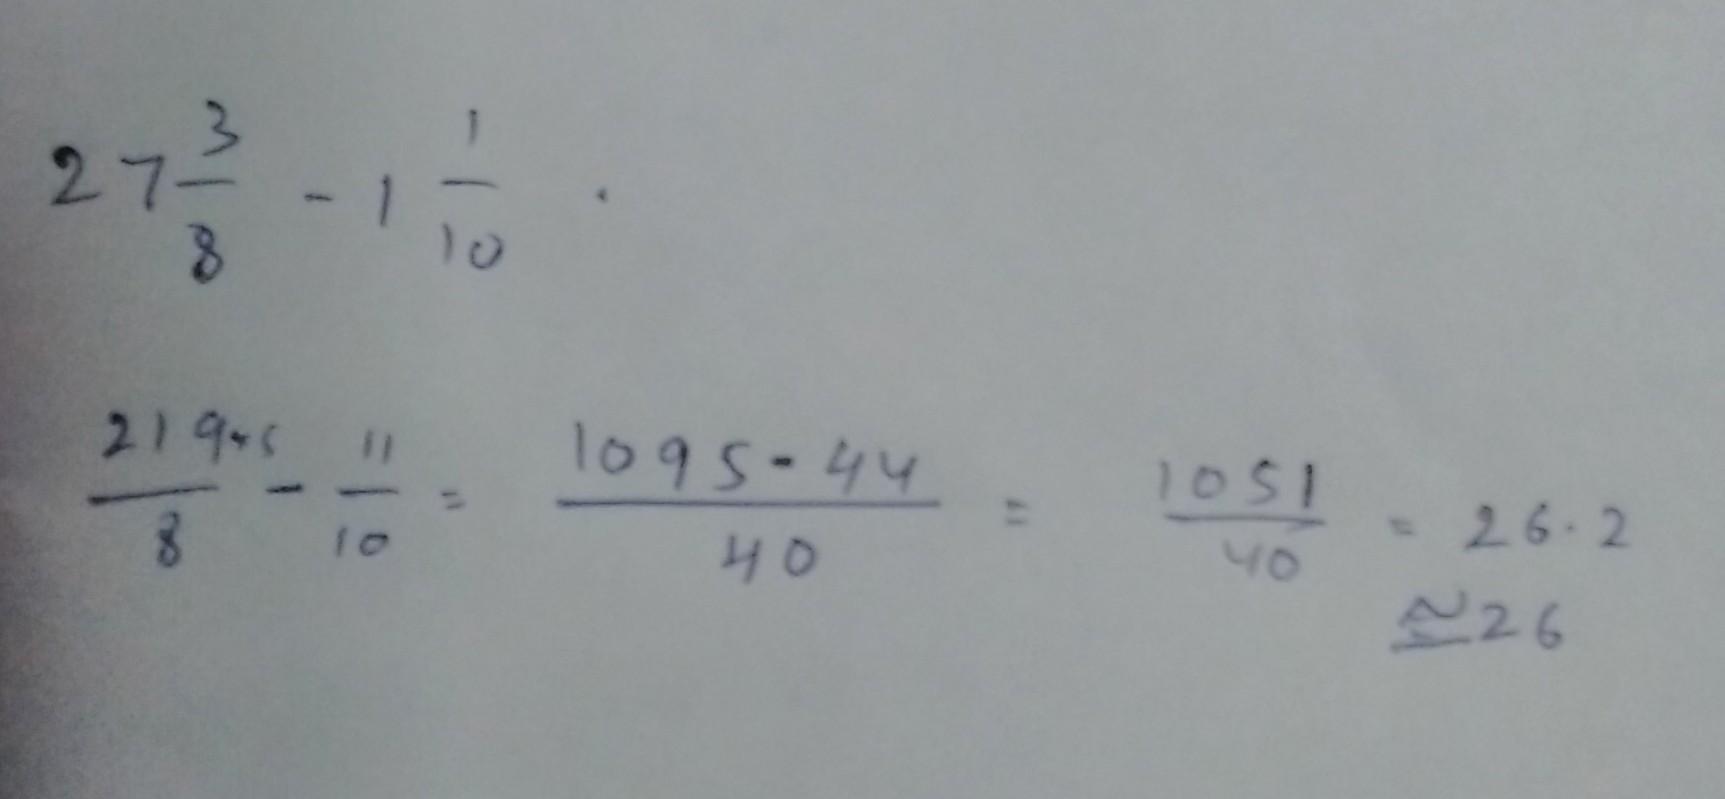 27 3/8 - 1 1/10 .
219×5/8 - 11/10 = 1095-44/40 = 1051/40 = 26.2
≅26